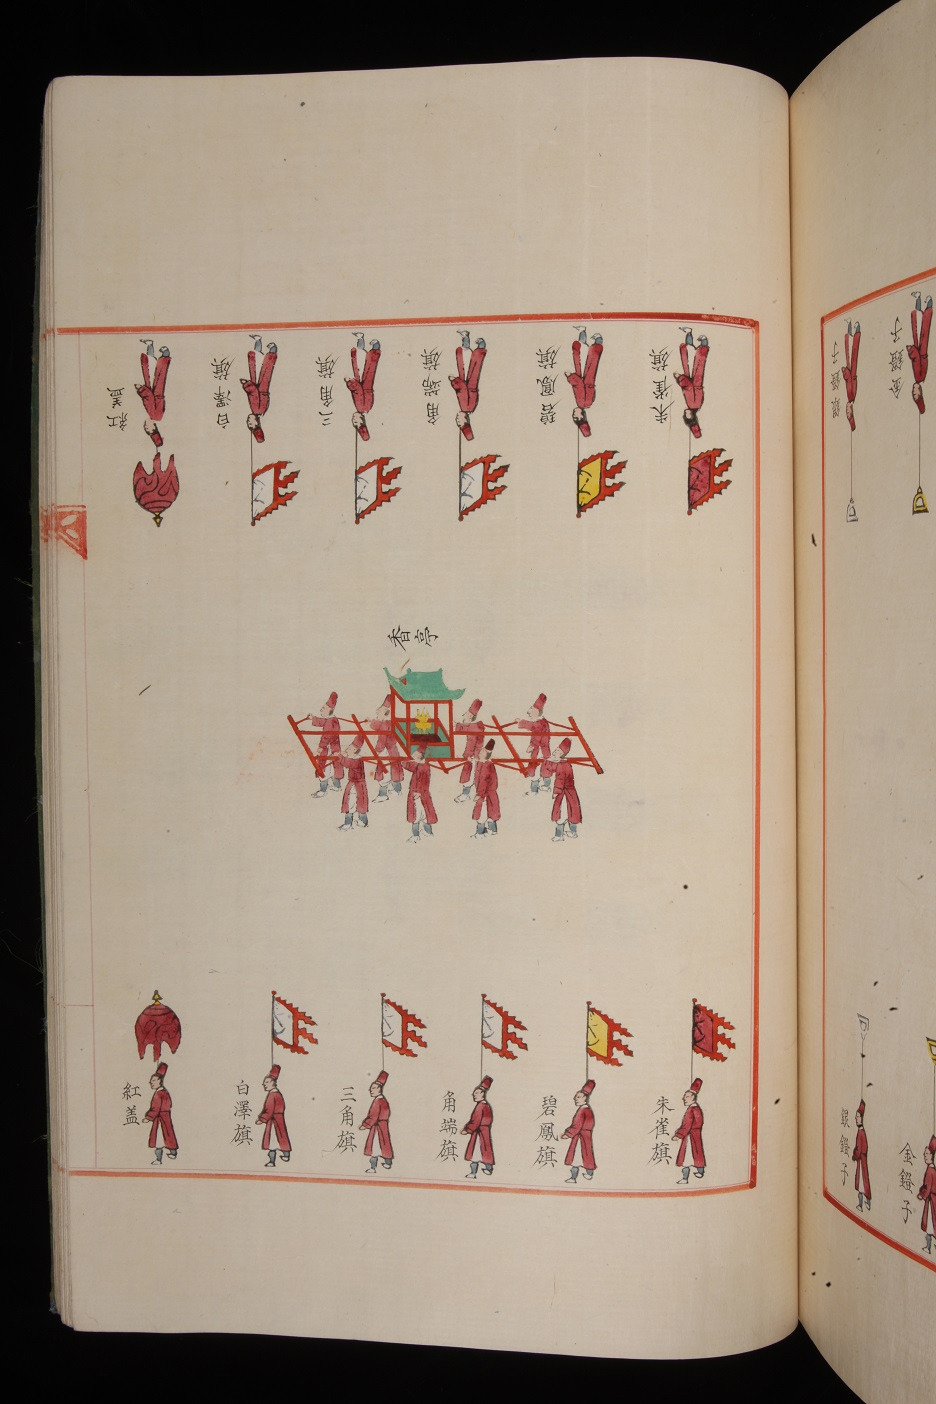 朱雀旗
碧鳳旗
角端旗
三角旗
白澤旗
紅盖
香亭
朱雀旗
碧鳳旗
角端旗
三角旗
白澤旗
紅盖
金鐙子
銀鐙子
金鐙子
銀鐙子